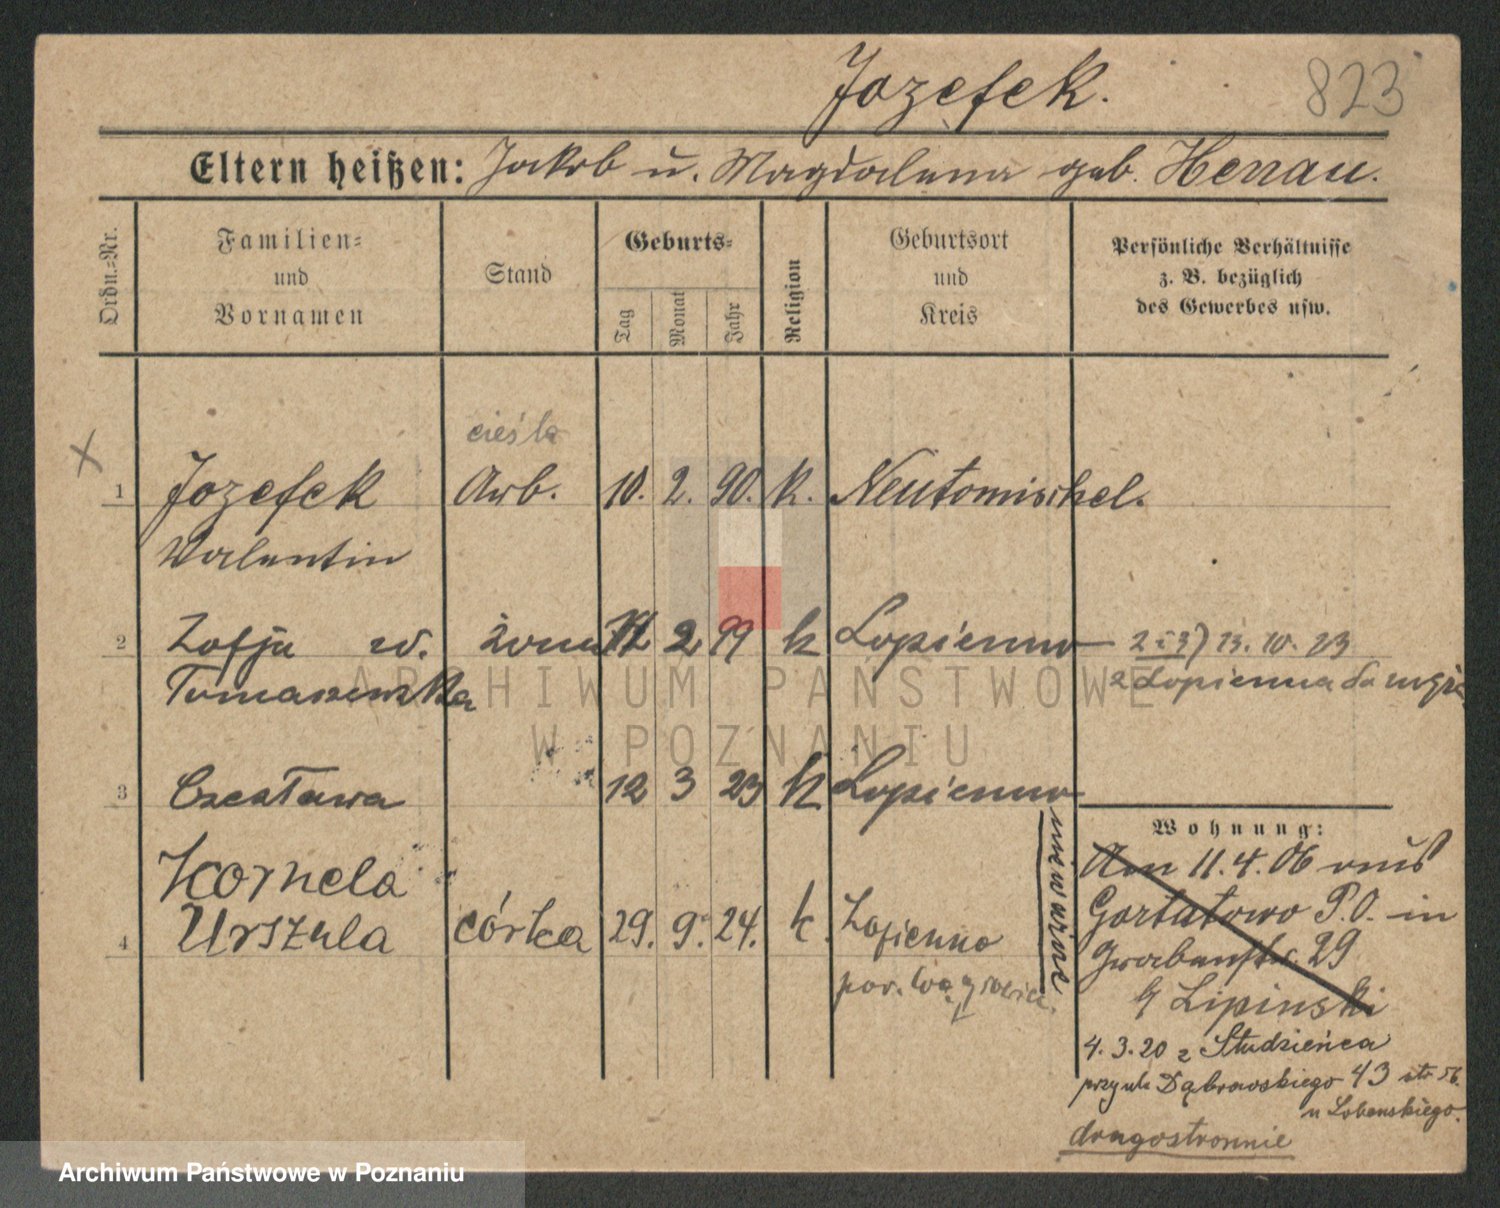 Jozefek.
823
Eltern heißen: Jakob u. Magdalena geb. Henrau.
Ordn.-Nr.
Familien-
und
Vornamen
Stand
Geburts-
Tag
Monat
Jahr
Religion
Geburtsort
und
Kreis
Persönliche Verhältnisse
z. B. bezüglich
des Gewerbes usw.
cieśla
1 Jozefek Arb. 10. 2. 90. k. Neutomischel.
Valentin
2 Zofja w. żona 2 99 k Łopienno 2 i 3) 13. 10. 23
Tomaszewska z Łopienna do męża
3 Czesława 12 3 23 k Łopienno
Kornela
4 Urszula córka 29. 9. 24. k. Łopienno
pow. Wągrowiec.
nieważne
Wohnung:
Am 11.4.06 aus
Gortatowo P.O. in
29
b/ Lipinski
4.3.20 z Studzieńca
przy ul. Dąbrowskiego 43 str 56.
u Lobenskiego.
drugostronnie
ARCHIWUM PAŃSTWOWE
W POZNANIU
Archiwum Państwowe w Poznaniu